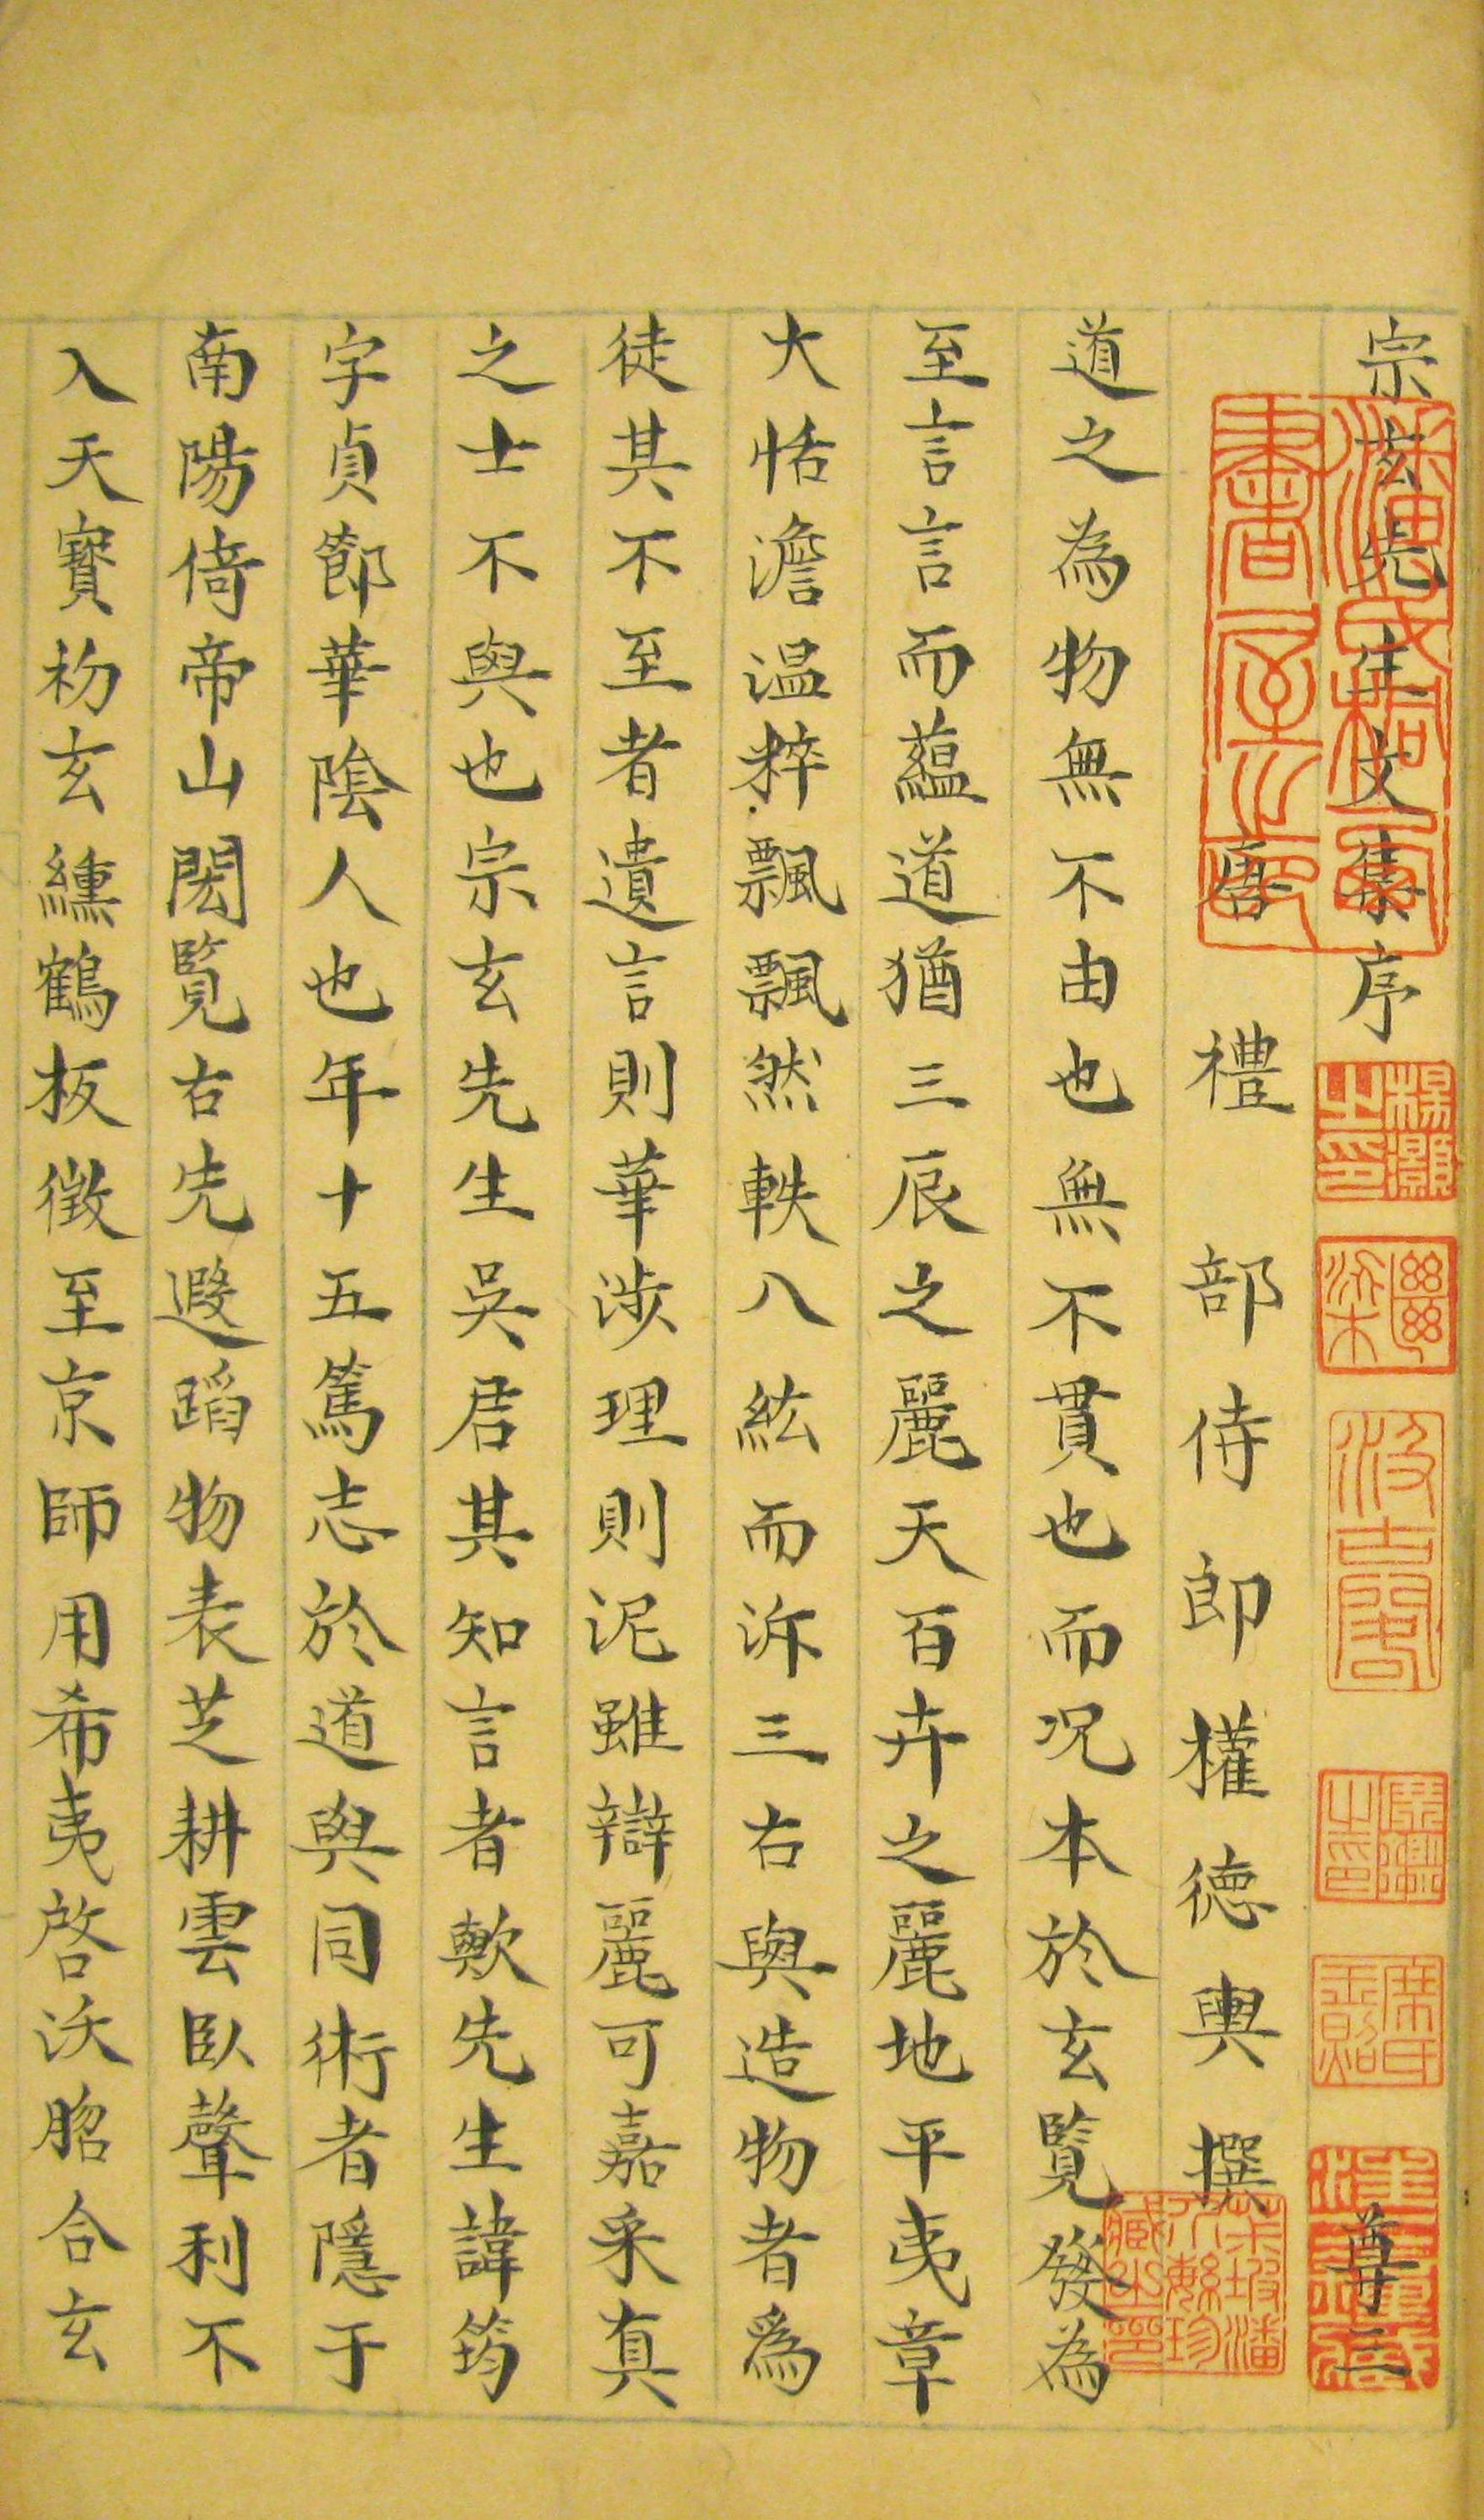 宗玄先生文集序 尊三
唐禮部侍郎權德輿撰
道之為物無不由也無不貫也而况本於玄覽發為
至言言而蘊道猶三辰之麗天百卉之麗地平夷章
大恬澹温粹飄飄然軼八紘而泝三古與造物者爲
徒其不至者遺言則華涉理則泥雖辯麗可嘉采真
之士不與也宗玄先生吳君其知言者歟先生諱筠
字貞節華陰人也年十五篤志於道與同術者隱于
南陽倚帝山閎覽古先遐蹈物表芝耕雲臥聲利不
入天寶初玄纁鶴板徵至京師用希夷啓沃脗合玄
楊灝之印
繼梁
汲古閣
席氏玉照